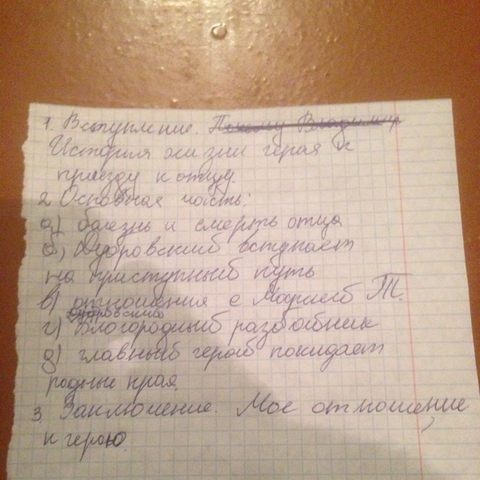 1. Вступление. Почему Владимир
История жизни героя к
приезду к отцу
2. Основная часть:
а) болезнь и смерть отца
б) Дубровский вступает
на приступный путь
в) отношения с Марией Т.
Дубровский
г) благородный разбойник
д) главный герой покидает
родные края
3. Заключение. Мое отношение
к герою.